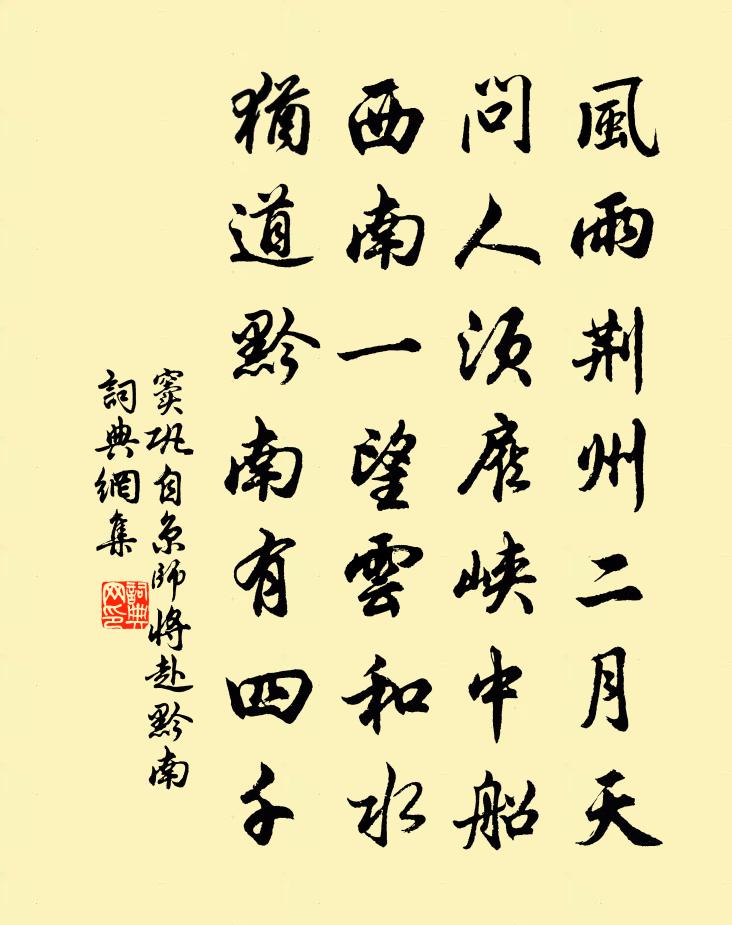 風雨荆州二月天
問人須雇峽中船
西南一望雲和水
猶道黔南有四千
竇巩自京師將赴黔南
詞典網集
詞典
网印